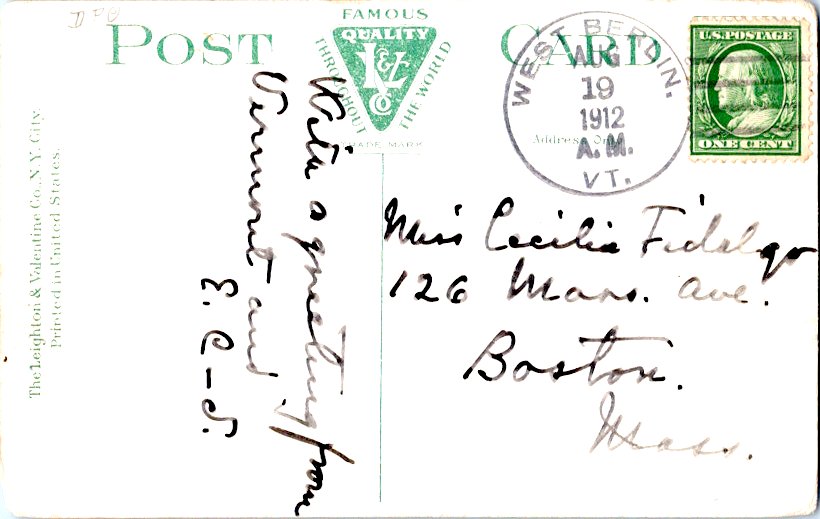 POST CARD
FAMOUS
QUALITY
L&V Co
THROUGHOUT THE WORLD
TRADE MARK
WEST BERLIN.
AUG
19
1912
A.M.
VT.
U.S. POSTAGE
ONE CENT
Address Only
The Leighton & Valentine Co., N.Y. City.
Printed in United States.
With a greeting from
Vermont and
E. C-S.
Miss Cecilia Fidalgo
126 Mass. Ave.
Boston.
Mass.